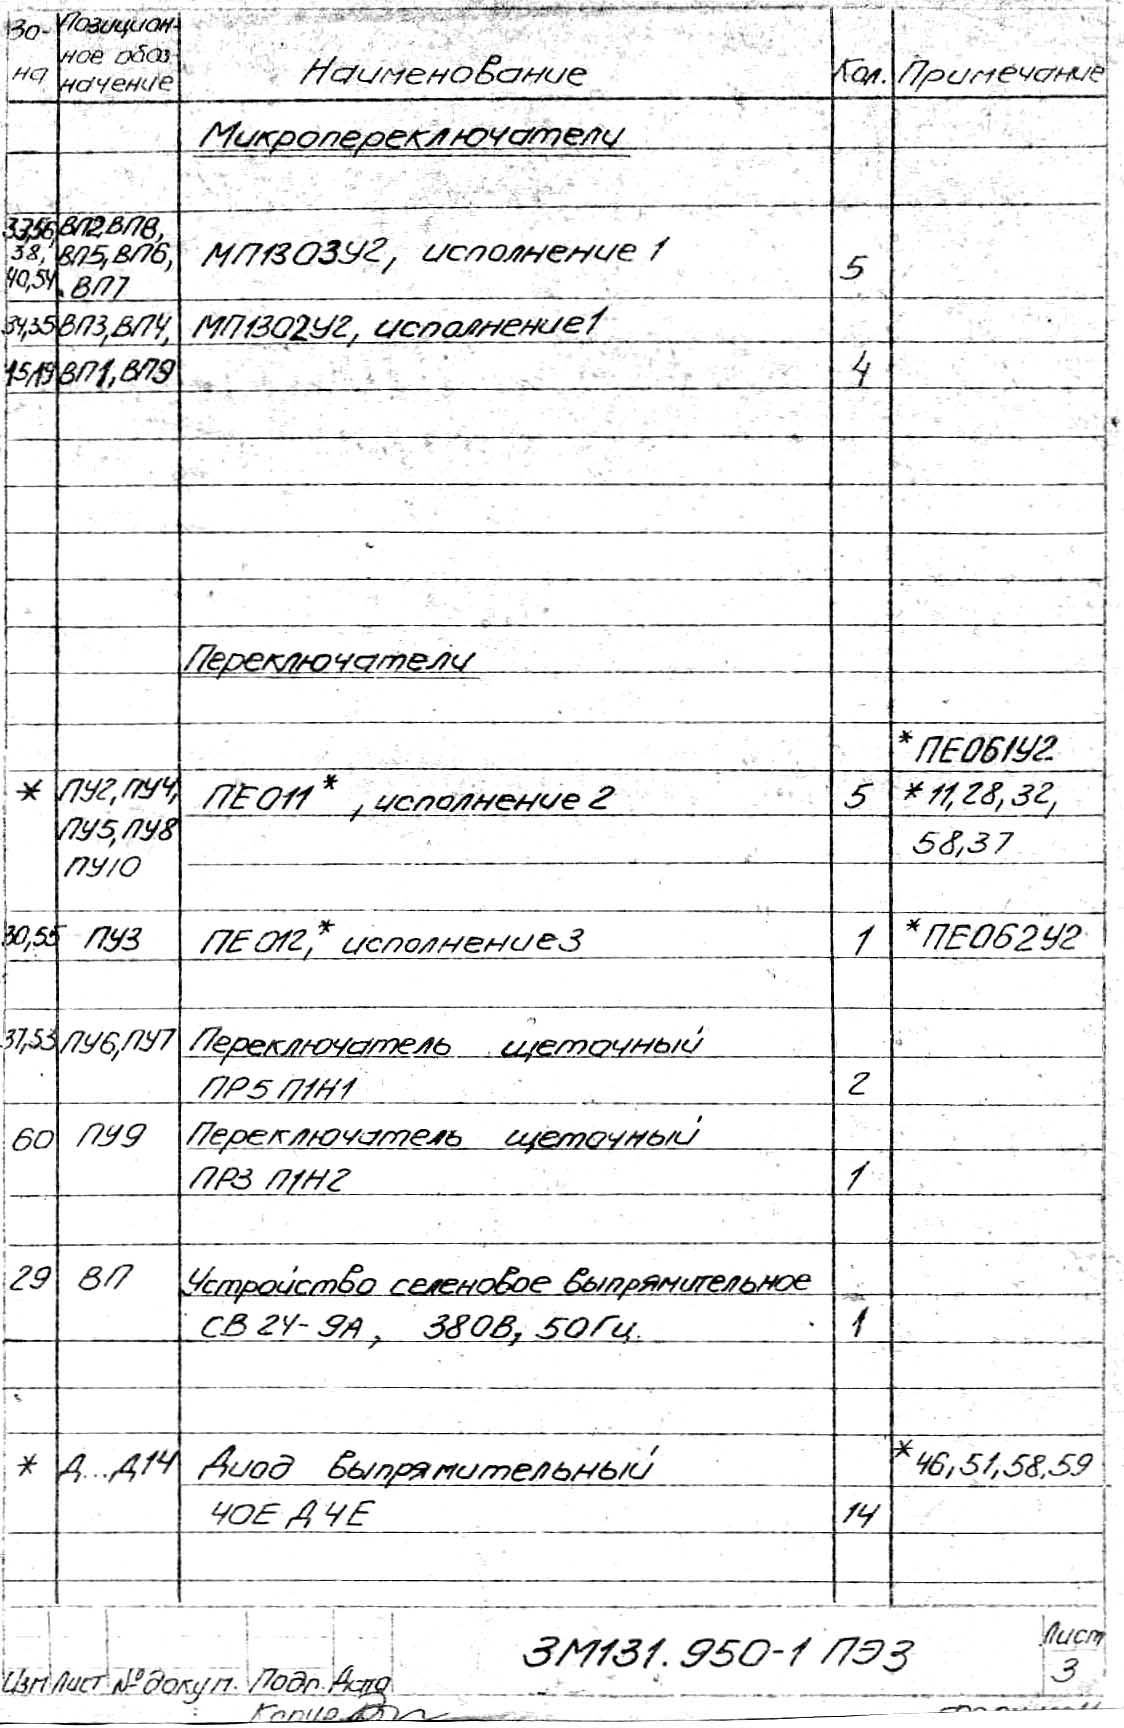 Зо- Позицион-
ное обоз
на начение Наименование Кол. Примечание
Микропереключатели
33,56, ВП2,ВП8,
38, ВП5,ВП6, МП1303У2, исполнение 1
40,54 ВП7 5
34,35 ВП3,ВП4, МП1302У2, исполнение 1
15,19 ВП1,ВП9 4
Переключатели
*ПЕ061У2
* ПУ2,ПУ4, ПЕ011*, исполнение 2 5 *11,28,32,
ПУ5,ПУ8 58,37
ПУ10
30,55 ПУ3 ПЕ012,* исполнение 3 1 *ПЕ062У2
37,53 ПУ6,ПУ7 Переключатель щеточный
ПР5 П1Н1 2
60 ПУ9 Переключатель щеточный
ПР3 П1Н2 1
29 ВП Устройство селеновое выпрямительное
СВ 24-9А, 380В, 50Гц. 1
* Д...Д14 Диод выпрямительный *46,51,58,59
40Е Д 4Е 14
3М131.950-1 ПЭ3 Лист
3
Изм Лист № докум. Подп. Дата
Копир